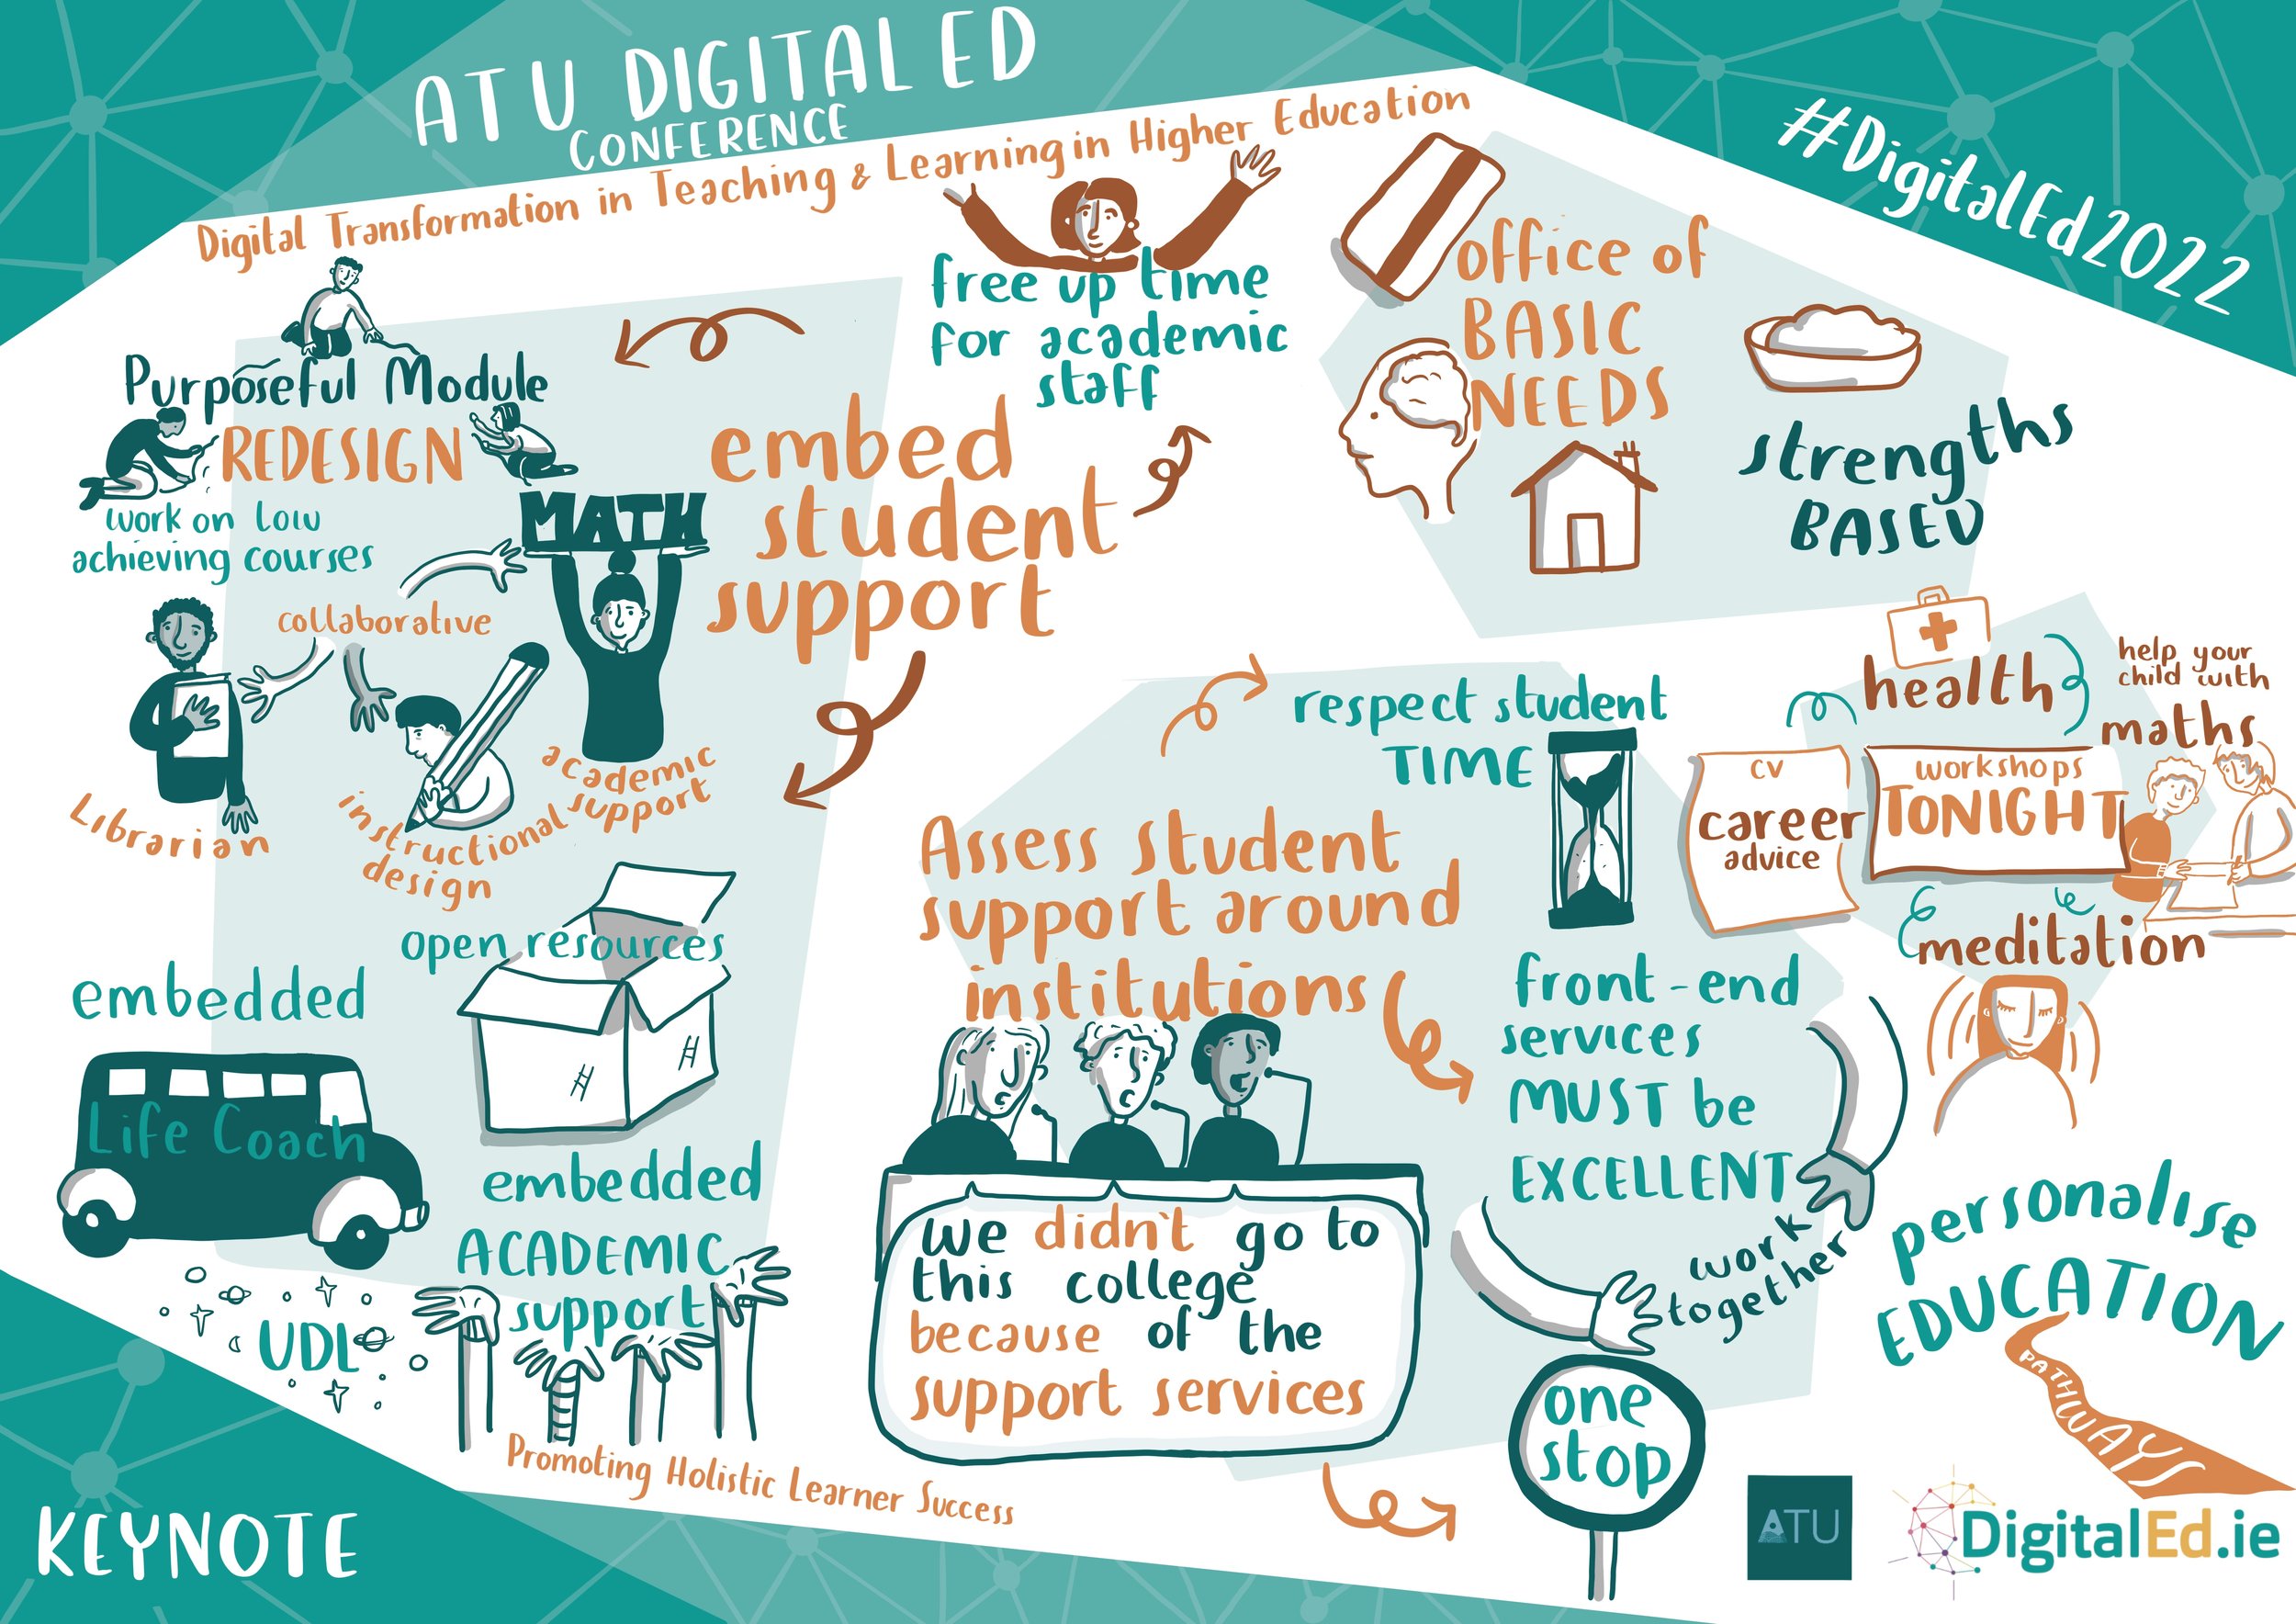 ATU DIGITAL ED
CONFERENCE
Digital Transformation in Teaching & Learning in Higher Education
#DigitalEd2022
Purposeful Module
REDESIGN
work on low
achieving courses
collaborative
MATH
Librarian
instructional
design
academic
support
embed
student
support
free up time
for academic
staff
office of
BASIC
NEEDS
strengths
BASED
open resources
embedded
Life Coach
embedded
ACADEMIC
support
UDL
Promoting Holistic Learner Success
KEYNOTE
Assess student
support around
institutions
we didn't go to
this college
because of the
support services
respect student
TIME
front-end
services
MUST be
EXCELLENT
work
together
one
stop
health
help your
child with
maths
CV
career
advice
workshops
TONIGHT
meditation
personalise
EDUCATION
PATHWAYS
ATU
DigitalEd.ie